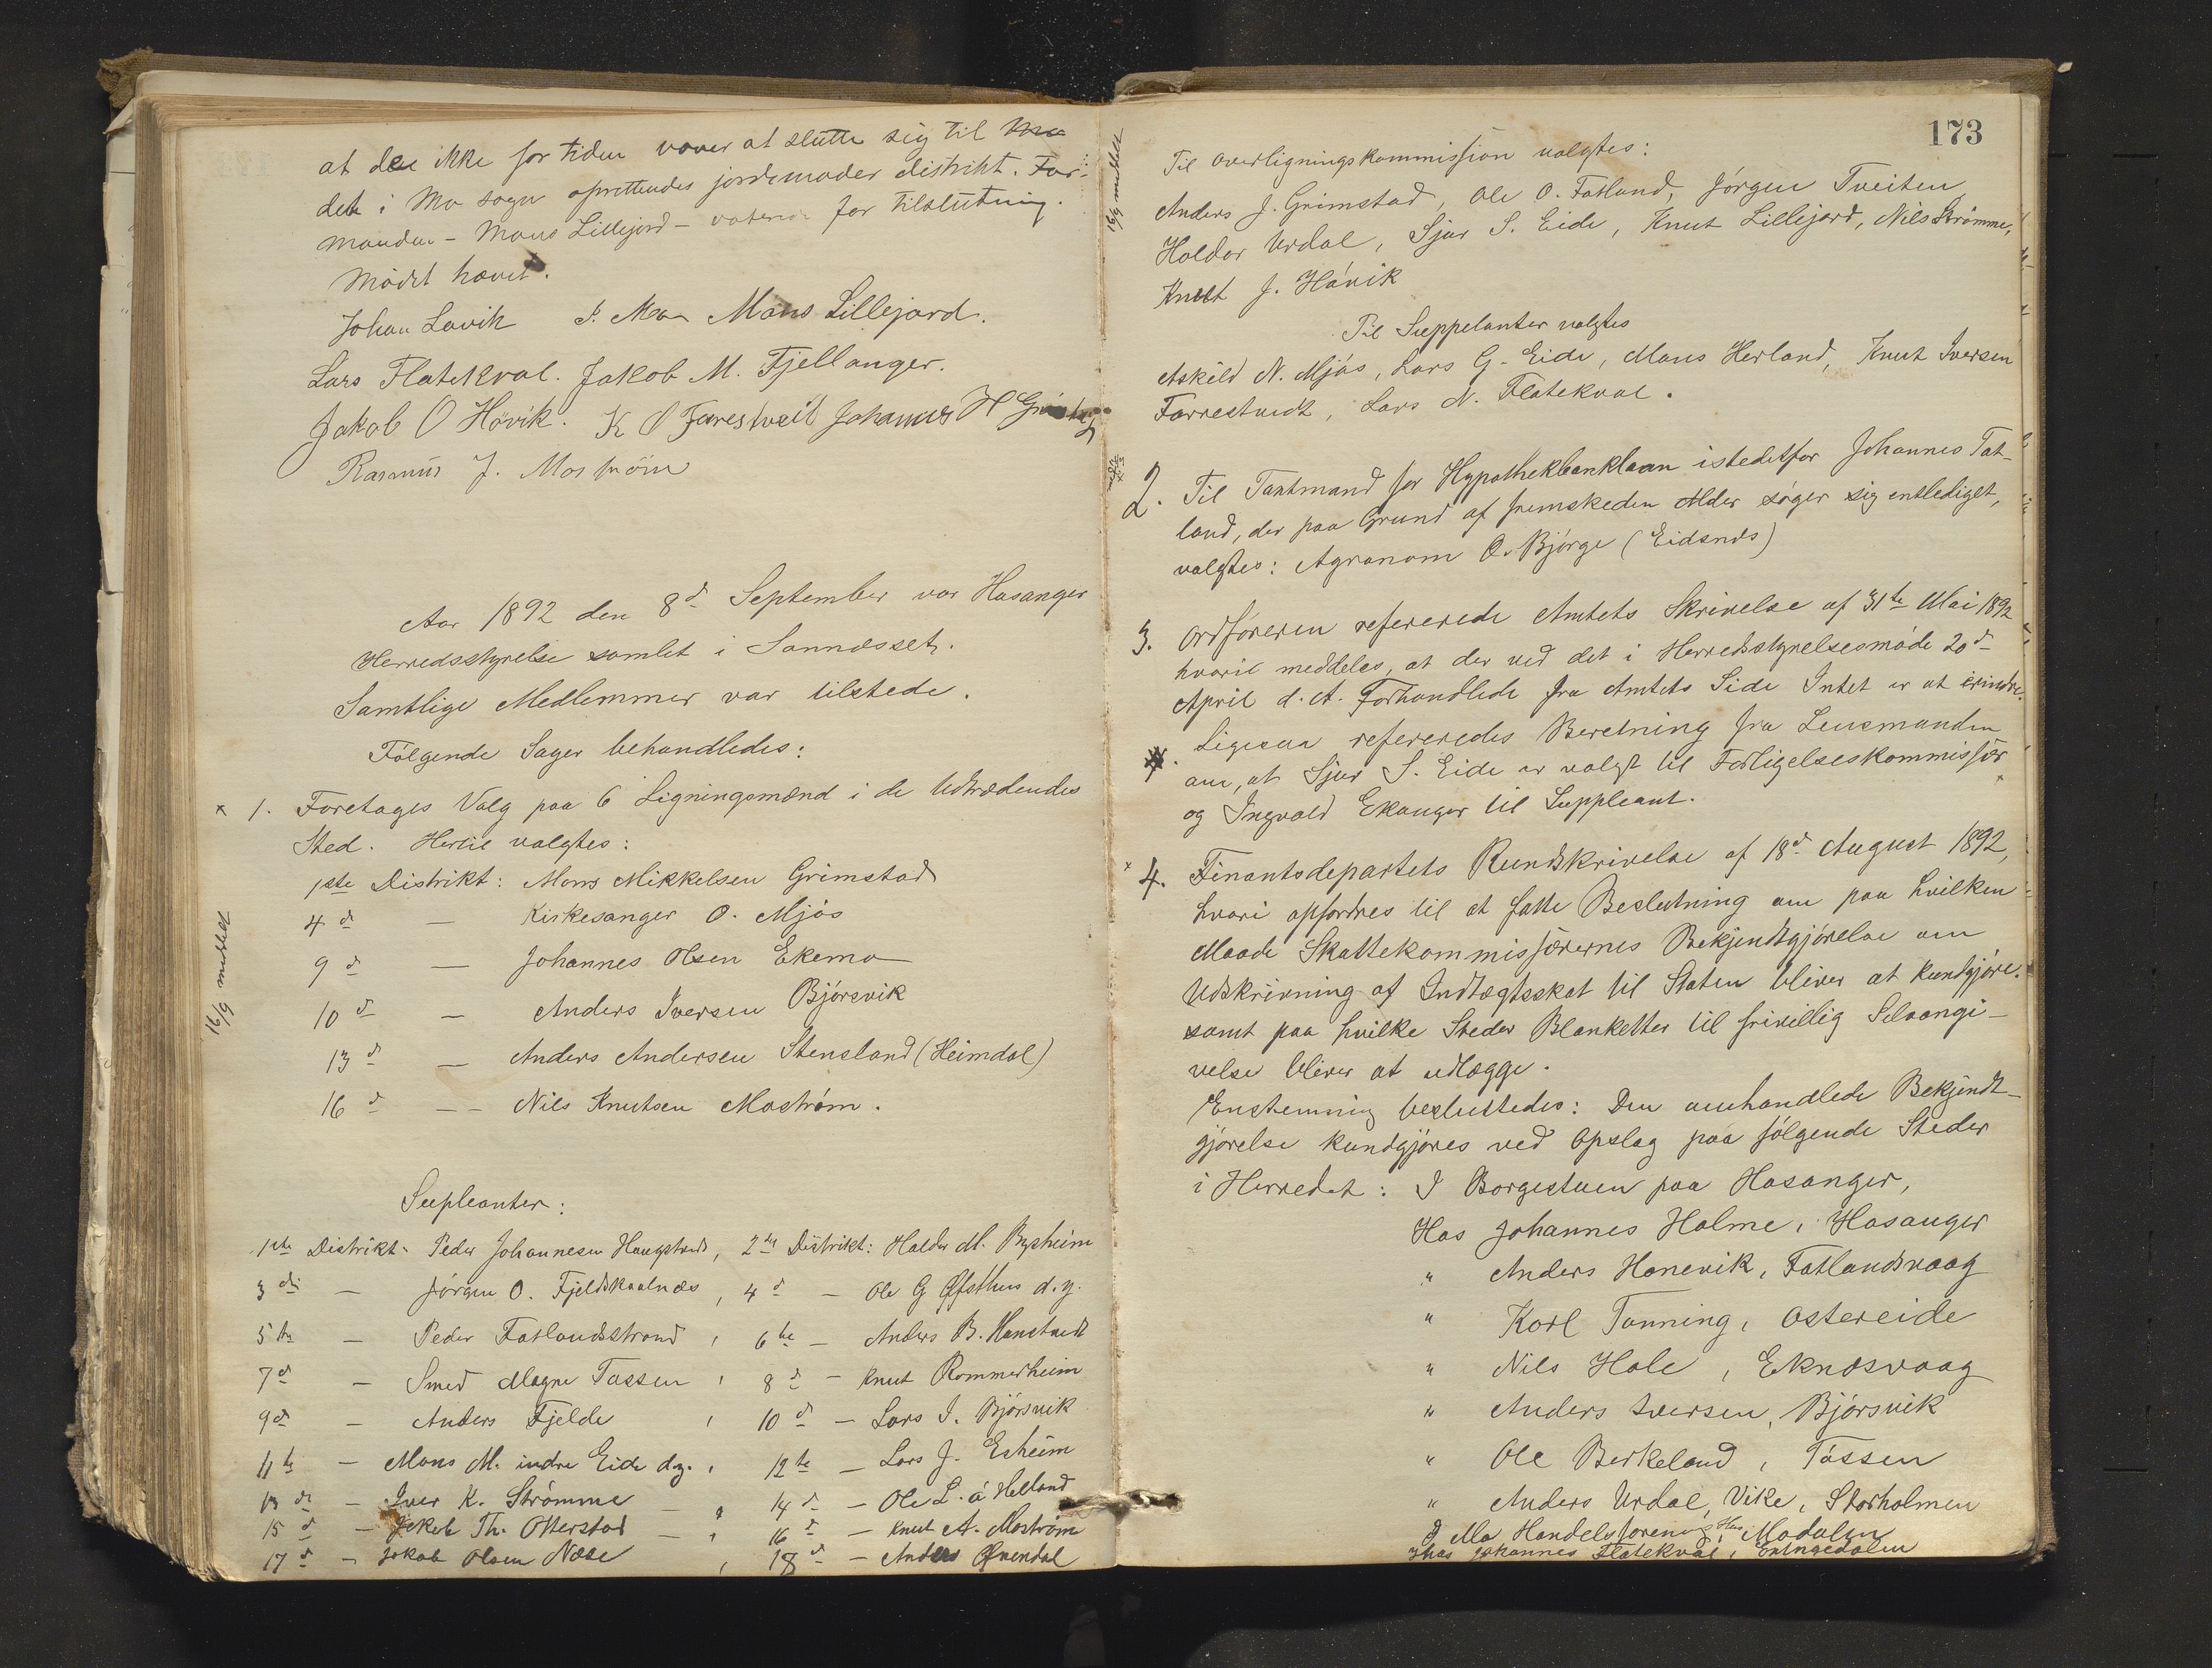 at de ikke for tiden vover at slutte sig til
det i Mo sogn oprettendes jordemoder distrikt. For-
manden - Mons Lillejord - voterer for tilslutning.
Mødet hævet.
Johan Lavik I. Moe Mons Lillejord.
Lars Flatekval. Jakob M. Fjellanger.
Jakob O Hövik. K O Farestveit Johannes H
Rasmus J. Moström
Aar 1892 den 8d September var Hosanger
Herredsstyrelse samlet i Sannæsset.
Samtlige Medlemmer var tilstede.
Følgende Sager behandledes:
x 1. Foretages Valg paa 6 Ligningsmænd i de Udtrædendes
Sted. Hertil valgtes:
1ste Distrikt: Mons Mikkelsen Grimstad
4d — Kirkesanger O. Mjøs
9d — Johannes Olsen Ekemo
10d — Anders Iversen Bjørsvik
13d — Anders Andersen Stensland (Heimdal)
16d — Nils Knutsen Mostrøm.
16/9 meddelt
Supleanter:
1ste Distrikt. Peder Johannesen Haugstvedt, 2det Distrikt: Haldor M. Bysheim
3die — Jørgen O. Fjeldskaalnæs, 4d — Ole G Øfsthus d.y.
5te — Peder Fatlandsstrand, 6te — Anders B. Hanstveit
7d — Smed Magne Tossen, 8d — Knut Rommerheim
9d — Anders Fjelde, 10d — Lars I. Bjørsvik
11te — Mons M. indre Eide d.y., 12te — Lars J. Esheim
13de — Iver K. Strømme — , 14d — Ole L. á Helland
15d — Jakob Th. Otterstad — , 16d — Knut A. Mostrøm
17d — Jakob Olsen Næse , 18d — Anders Øvendal
173
16/9 meddelt
Til Overligningskommission valgtes:
Anders J. Grimstad, Ole O. Fatland, Jørgen Tveiten
Haldor Urdal, Sjur S. Eide, Knut Lillejord, Nils Strømme,
Knut J. Hávik
Til Suppelanter valgtes
Askild N. Mjøs, Lars G. Eide, Mons Herland, Knut Iversen
Farrestvedt, Lars N. Flatekval.
2. Til Taxtmand for Hypothekbanklaan istedetfor Johannes Fat-
land, der paa Grund af fremskeden Alder søger sig entlediget,
valgtes: Agronom O. Bjørge (Eidsnes)
3. Ordføreren refererede Amtets Skrivelse af 31te Mai 1892
hvori meddeles, at der ved det i Herredsstyrelsesmøde 20d
April d. A. Forhandlede fra Amtets Side Intet er at erindre.
Ligesaa refereredes Beretning fra Lensmanden
om, at Sjur S. Eide er valgt til Forligelseskommissær
og Ingvald Ekanger til Suppleant.
x 4. Finantsdepartets Rundskrivelse af 18d August 1892,
hvori opfordres til at fatte Beslutning om paa hvilken
Maade Skattekommissærernes Bekjendtgjørelse om
Udskrivning af Indtægtsskat til Staten bliver at kundgjøre.
samt paa hvilke Steder Blanketter til frivillig Selvangi-
velse bliver at udlægge.
Enstemmig besluttedes: Den omhandlede Bekjendt-
gjørelse kundgjøres ved Opslag paa følgende Steder
i Herredet: I Borgestuen paa Hosanger,
Hos Johannes Holme, Hosanger
" Anders Hanevik, Fatlandsvaag
" Karl Tanning, Ostereide
" Nils Hole, Eknæsvaag
" Anders Iversen, Bjørsvik
" Ole Berkeland, Tøssen
" Anders Urdal, Vike, Storholmen
I Mo Handelsforening, Modalen
Hos Johannes Flatekval, Eksingedalen